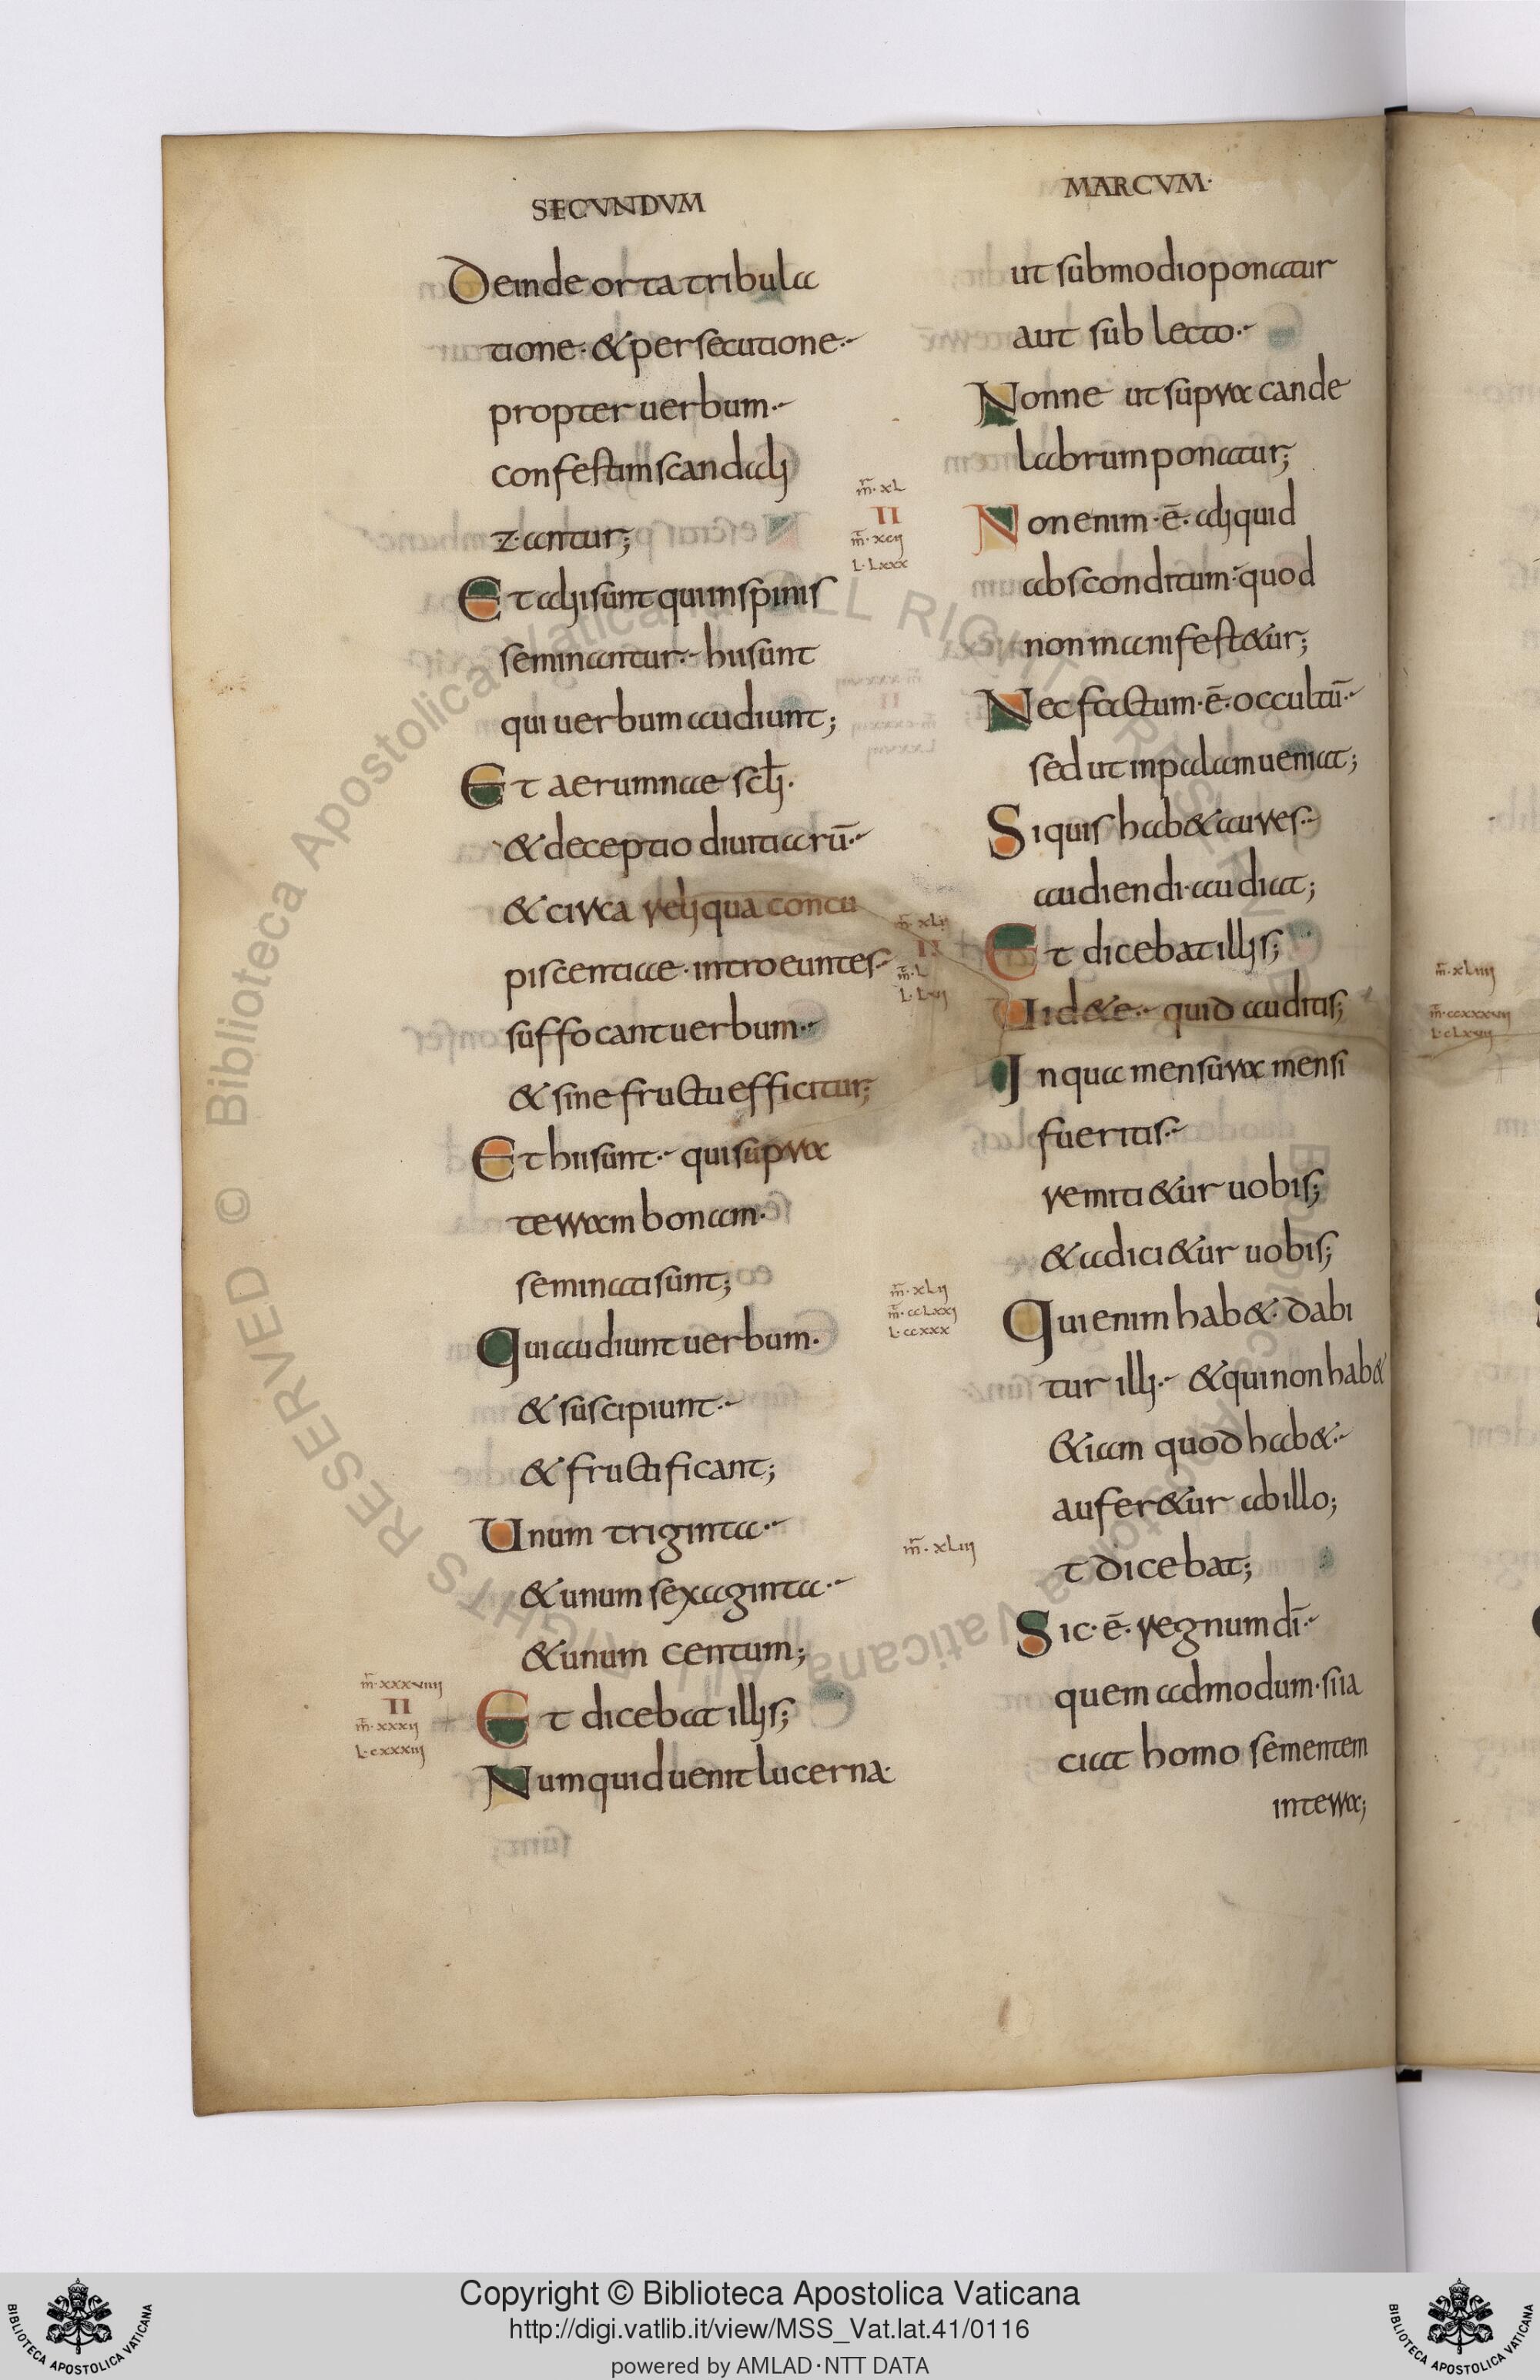 SECUNDUM
Deinde orta tribula
tione· & persecutione·
propter uerbum·
confestim scandali
z·antur;
Et alii sunt qui in spinis
seminantur· hii sunt
qui uerbum audiunt;
Et aerumnae scli·
& deceptio diuitiarū·
& circa reliqua concu
piscentiae· introeuntes
suffocant uerbum·
& sine fructu efficitur;
Et hii sunt· qui supra
terram bonam·
seminati sunt;
Qui audiunt uerbum·
& suscipiunt·
& fructificant;
Unum triginta·
& unum sexaginta·
& unum centum;
m̄·xxxviiii
II
m̄·xxxii
L·cxxxiii
Et dicebat illis;
Numquid uenit lucerna·
MARCUM·
ut sub modio ponatur
aut sub lecto·
Nonne ut supra cande
labrum ponatur;
m̄·xL
II
m̄·xcii
L·Lxxx
Non enim·ē·aliquid
absconditum· quod
non manifest&ur;
Nec factum·ē·occultū·
sed ut in palam ueniat;
Si quis hab& aures·
audiendi·audiat;
m̄·xLi
II
m̄·L
L·Lvi
Et dicebat illis;
Uid&e· quid auditis;
In qua mensura mensi
fueritis·
remiti&ur uobis;
& adici&ur uobis;
m̄·xLii
m̄·ccLxxi
L·ccxxx
Qui enim hab&· dabi
tur illi· & qui non hab&
&iam quod hab&·
aufer&ur ab illo;
m̄·xLiii
t dicebat;
Sic·ē·regnum dī·
quem admodum·si ia
ciat homo sementem
in terra;
m̄·xLiiii
m̄·ccxxxvii
L·cLxvii
Copyright © Biblioteca Apostolica Vaticana
http://digi.vatlib.it/view/MSS_Vat.lat.41/0116
powered by AMLAD·NTT DATA
BIBLIOTECA APOSTOLICA VATICANA
BIBLIOTECA APOSTOLICA VATICANA
© Biblioteca Apostolica Vaticana ALL RIGHTS RESERVED
© Biblioteca Apostolica Vaticana ALL RIGHTS RESERVED